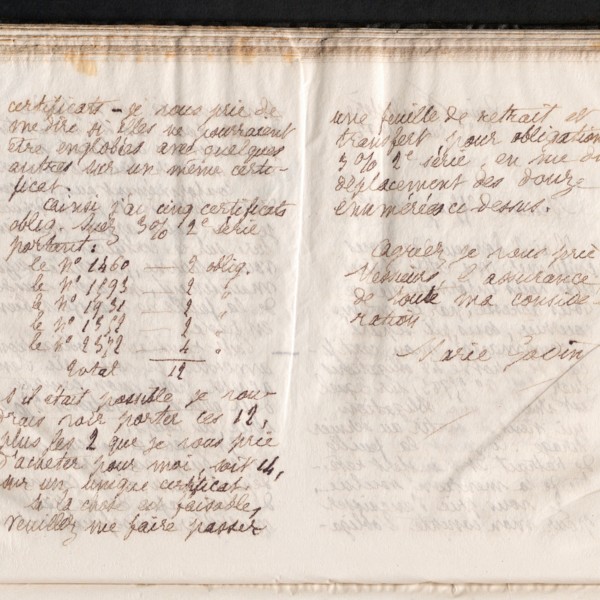 certificats - je vous prie de
me dire si elles ne pourraient
être englobés avec quelques
autres sur un même certi-
ficat.
Ainsi j'ai cinq certificats
oblig. Suez 3% 2e série
portant:
le No 1460 — 2 oblig.
le No 1893 — 2 "
le No 1931 — 2 "
le No — 2 "
le No — 4 "
total 12
s'il était possible je vou-
drais voir porter ces 12,
plus les 2 que je vous prie
d'acheter pour moi, soit 14,
sur un unique certificat.
Si la chose est faisable,
veuillez me faire passer
une feuille de retrait et
transfert pour obligation
3% 2e série, en vue
déplacement des douze
énumérées ci dessus.
Agréez je vous prie
Messieurs l'assurance
de toute ma considé-
ration
Marie Gavin